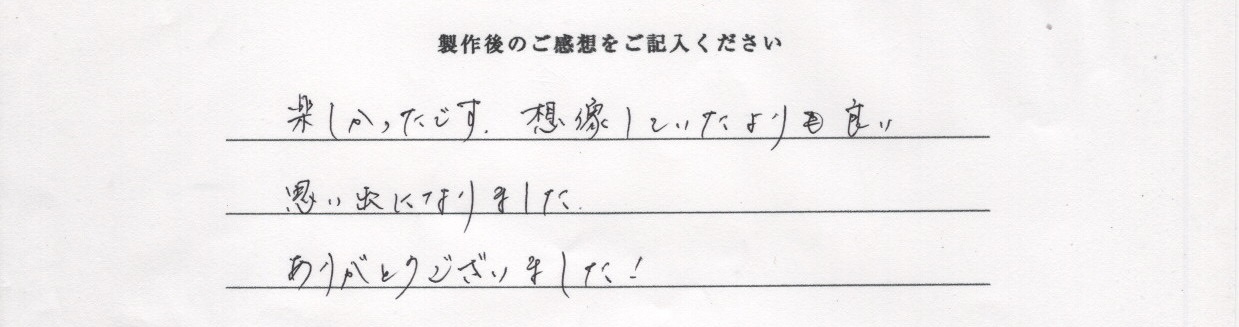 製作後のご感想をご記入ください
楽しかったです。想像していたよりも良い
思い出になりました。
ありがとうございました!